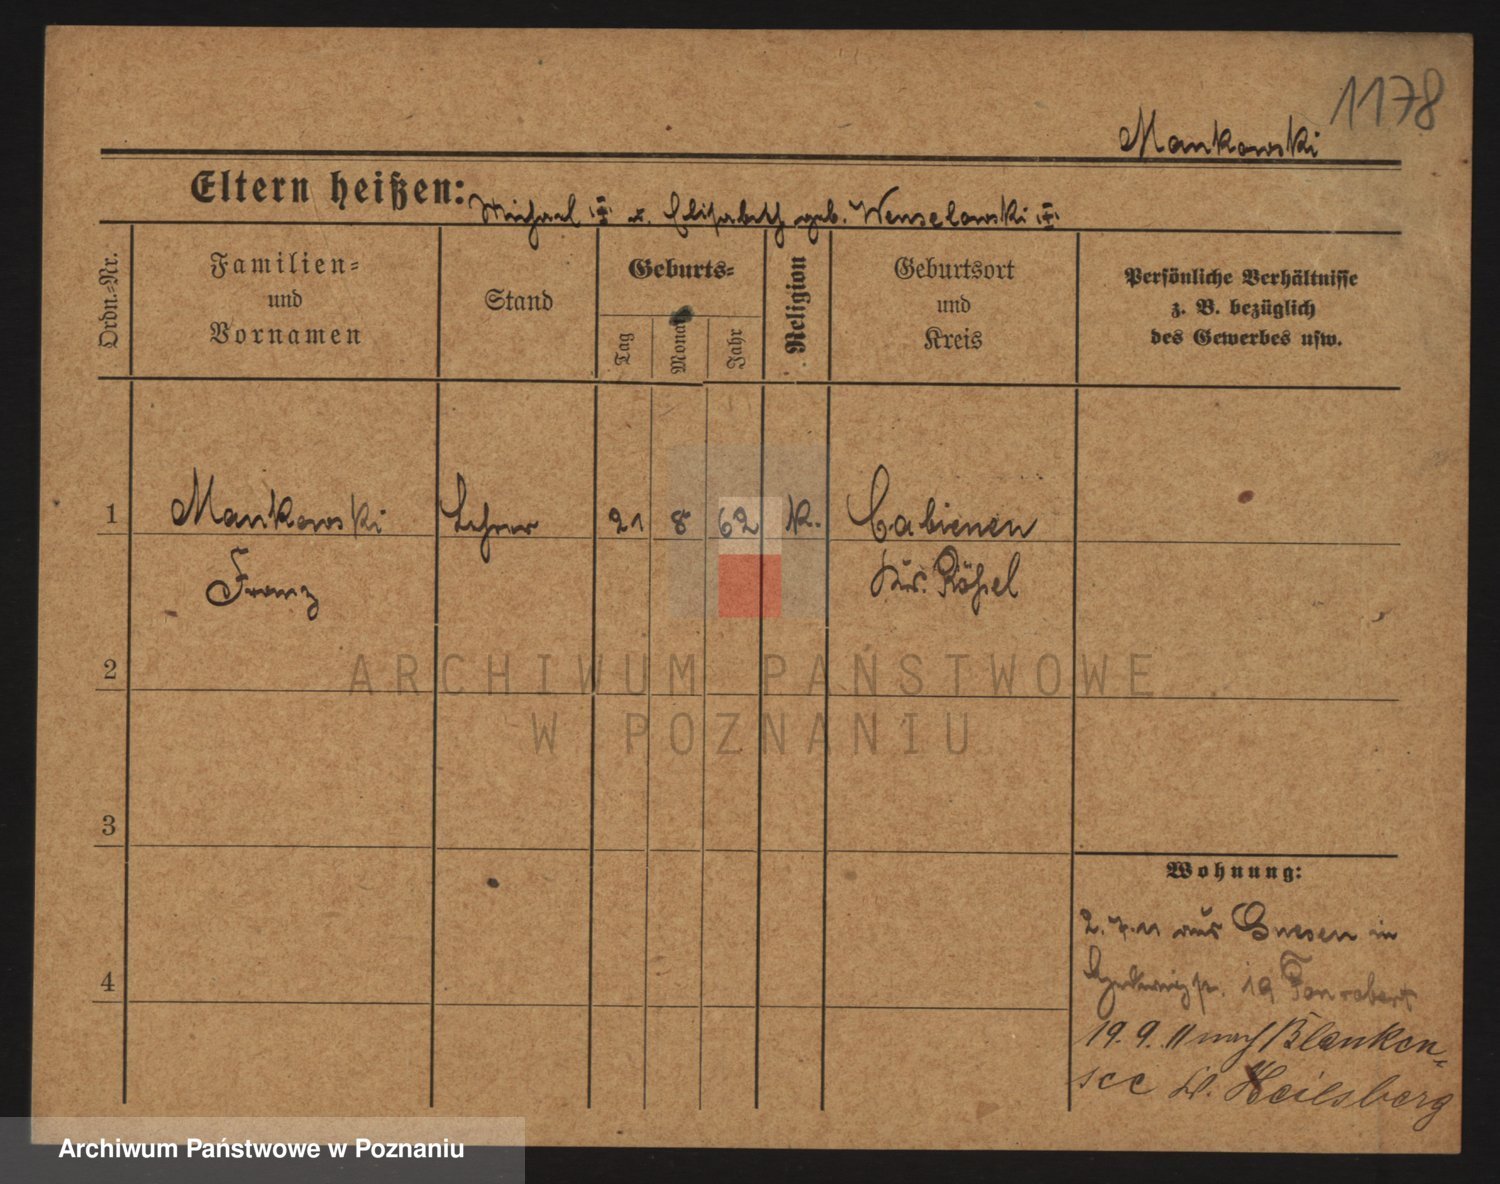 1178
Mankowski
Eltern heißen: Michael u. Elisabeth geb. Wenselowski
Ordn.-Nr.
Familien-
und
Vornamen
Stand
Geburts-
Tag
Monat
Jahr
Religion
Geburtsort
und
Kreis
Persönliche Verhältnisse
z. B. bezüglich
des Gewerbes usw.
1 Mankowski Lehrer 21 8 62 K. Cabienen
Franz Krs. Rößel
2
3
4
Wohnung:
2. 7. 11 aus Gnesen in
19
19. 9. 11 nach Blanken-
see Kr. Heilsberg
ARCHIWUM PAŃSTWOWE
W POZNANIU
Archiwum Państwowe w Poznaniu